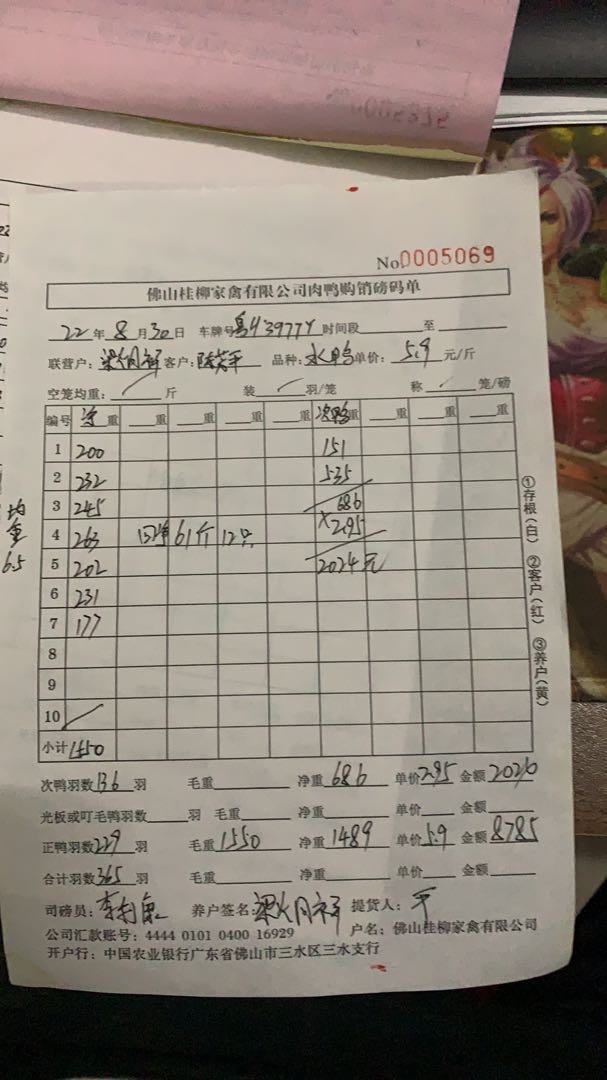 No.0005069
佛山桂柳家禽有限公司肉鸭购销磅码单
22年8月30日 车牌号 43977Y 时间段 至
联营户： 客户： 品种：水鸭 单价：5.9元/斤
空笼均重： 斤 装 羽/笼 称 笼/磅
编号 重 重 重 重 重 次鸭重 重 重 重
1 200 151
2 232 535
3 245 686
4 263 61斤 12只 ×2.95
5 202 2024元
6 231
7 177
8
9
10
小计 1550
次鸭羽数136羽 毛重 净重686 单价2.95 金额2020
光板或叮毛鸭羽数 羽 毛重 净重 单价 金额
正鸭羽数229羽 毛重1550 净重1489 单价5.9 金额8785
合计羽数365羽 毛重 净重 单价 金额
司磅员： 养户签名： 提货人：平
公司汇款账号：4444 0101 0400 16929 户名：佛山桂柳家禽有限公司
开户行：中国农业银行广东省佛山市三水区三水支行
①存根（白） ②客户（红） ③养户（黄）
均重
6.5